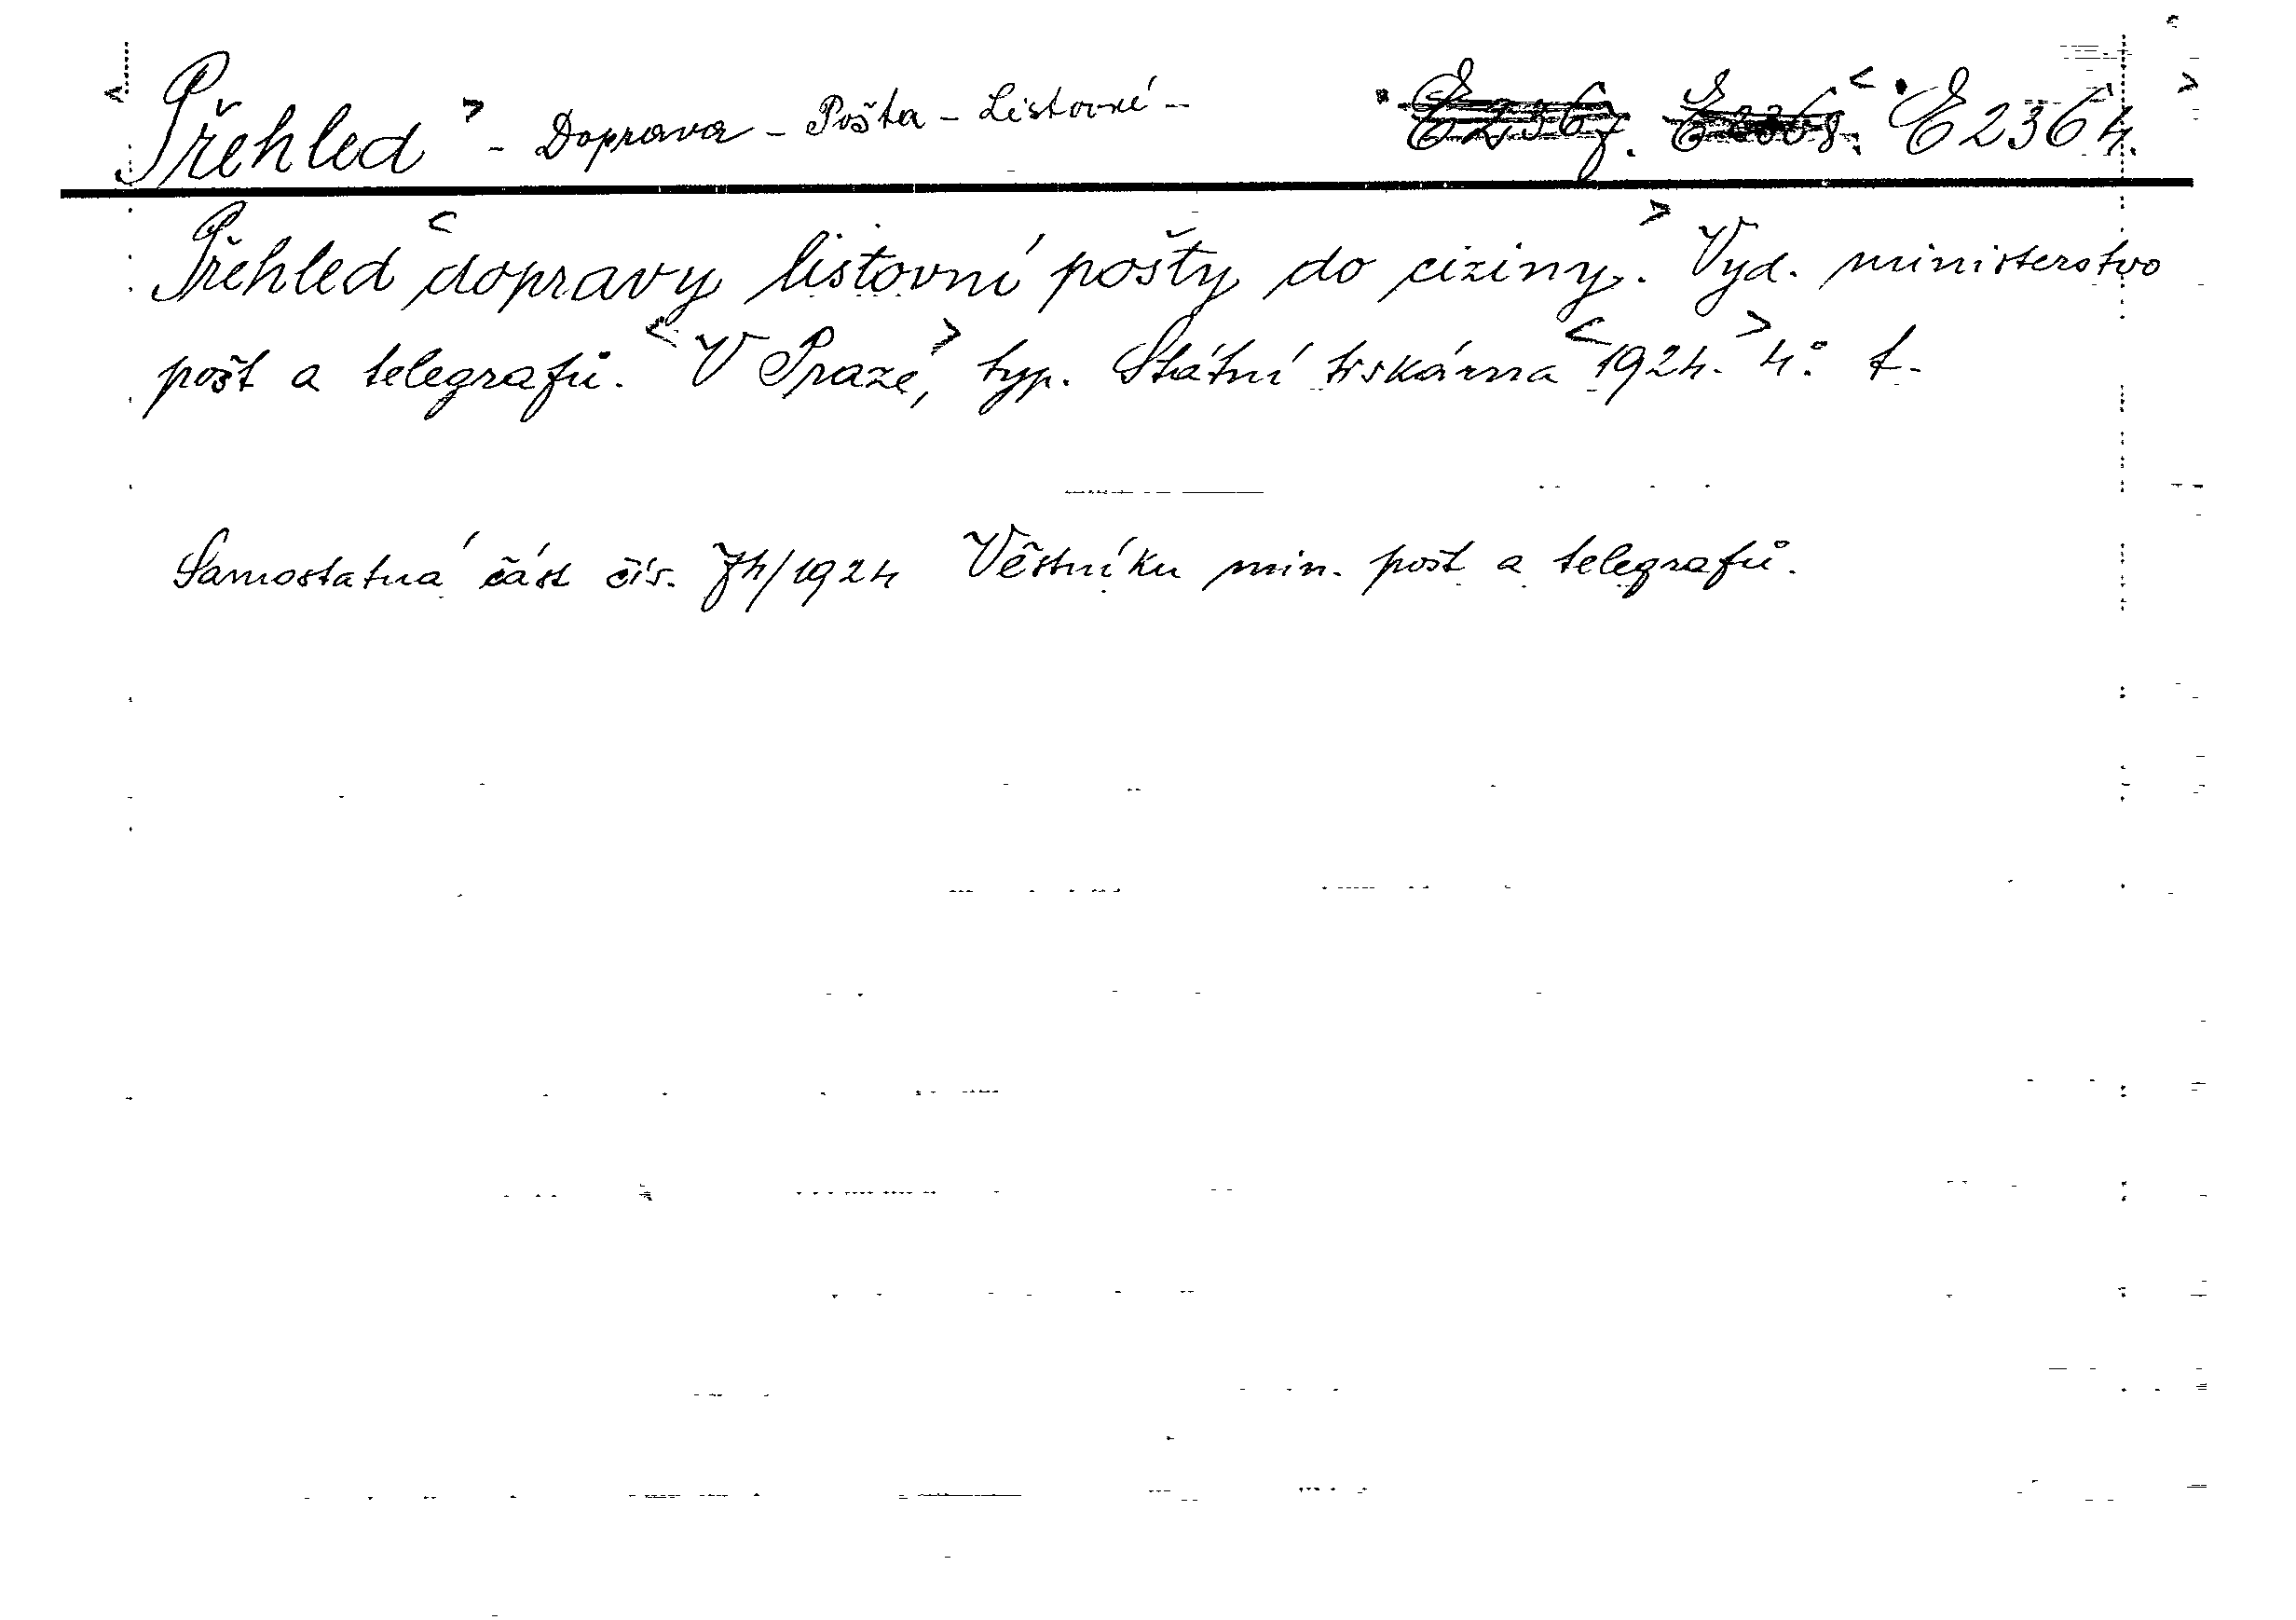 <Přehled> - Doprava - Pošta - Listovné - E 2367. E 2368. <E 2364.>
Přehled <dopravy listovní pošty do ciziny.> Vyd. ministerstvo
pošt a telegrafů. <V Praze,> typ. Státní tiskárna <1924.> 4°. f.
Samostatná část čís. 74/1924 Věstníku min. pošt a telegrafů.